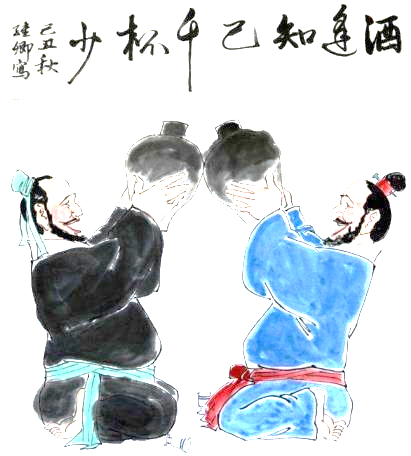 酒逢知己千杯少
己丑秋
瑾卿寫